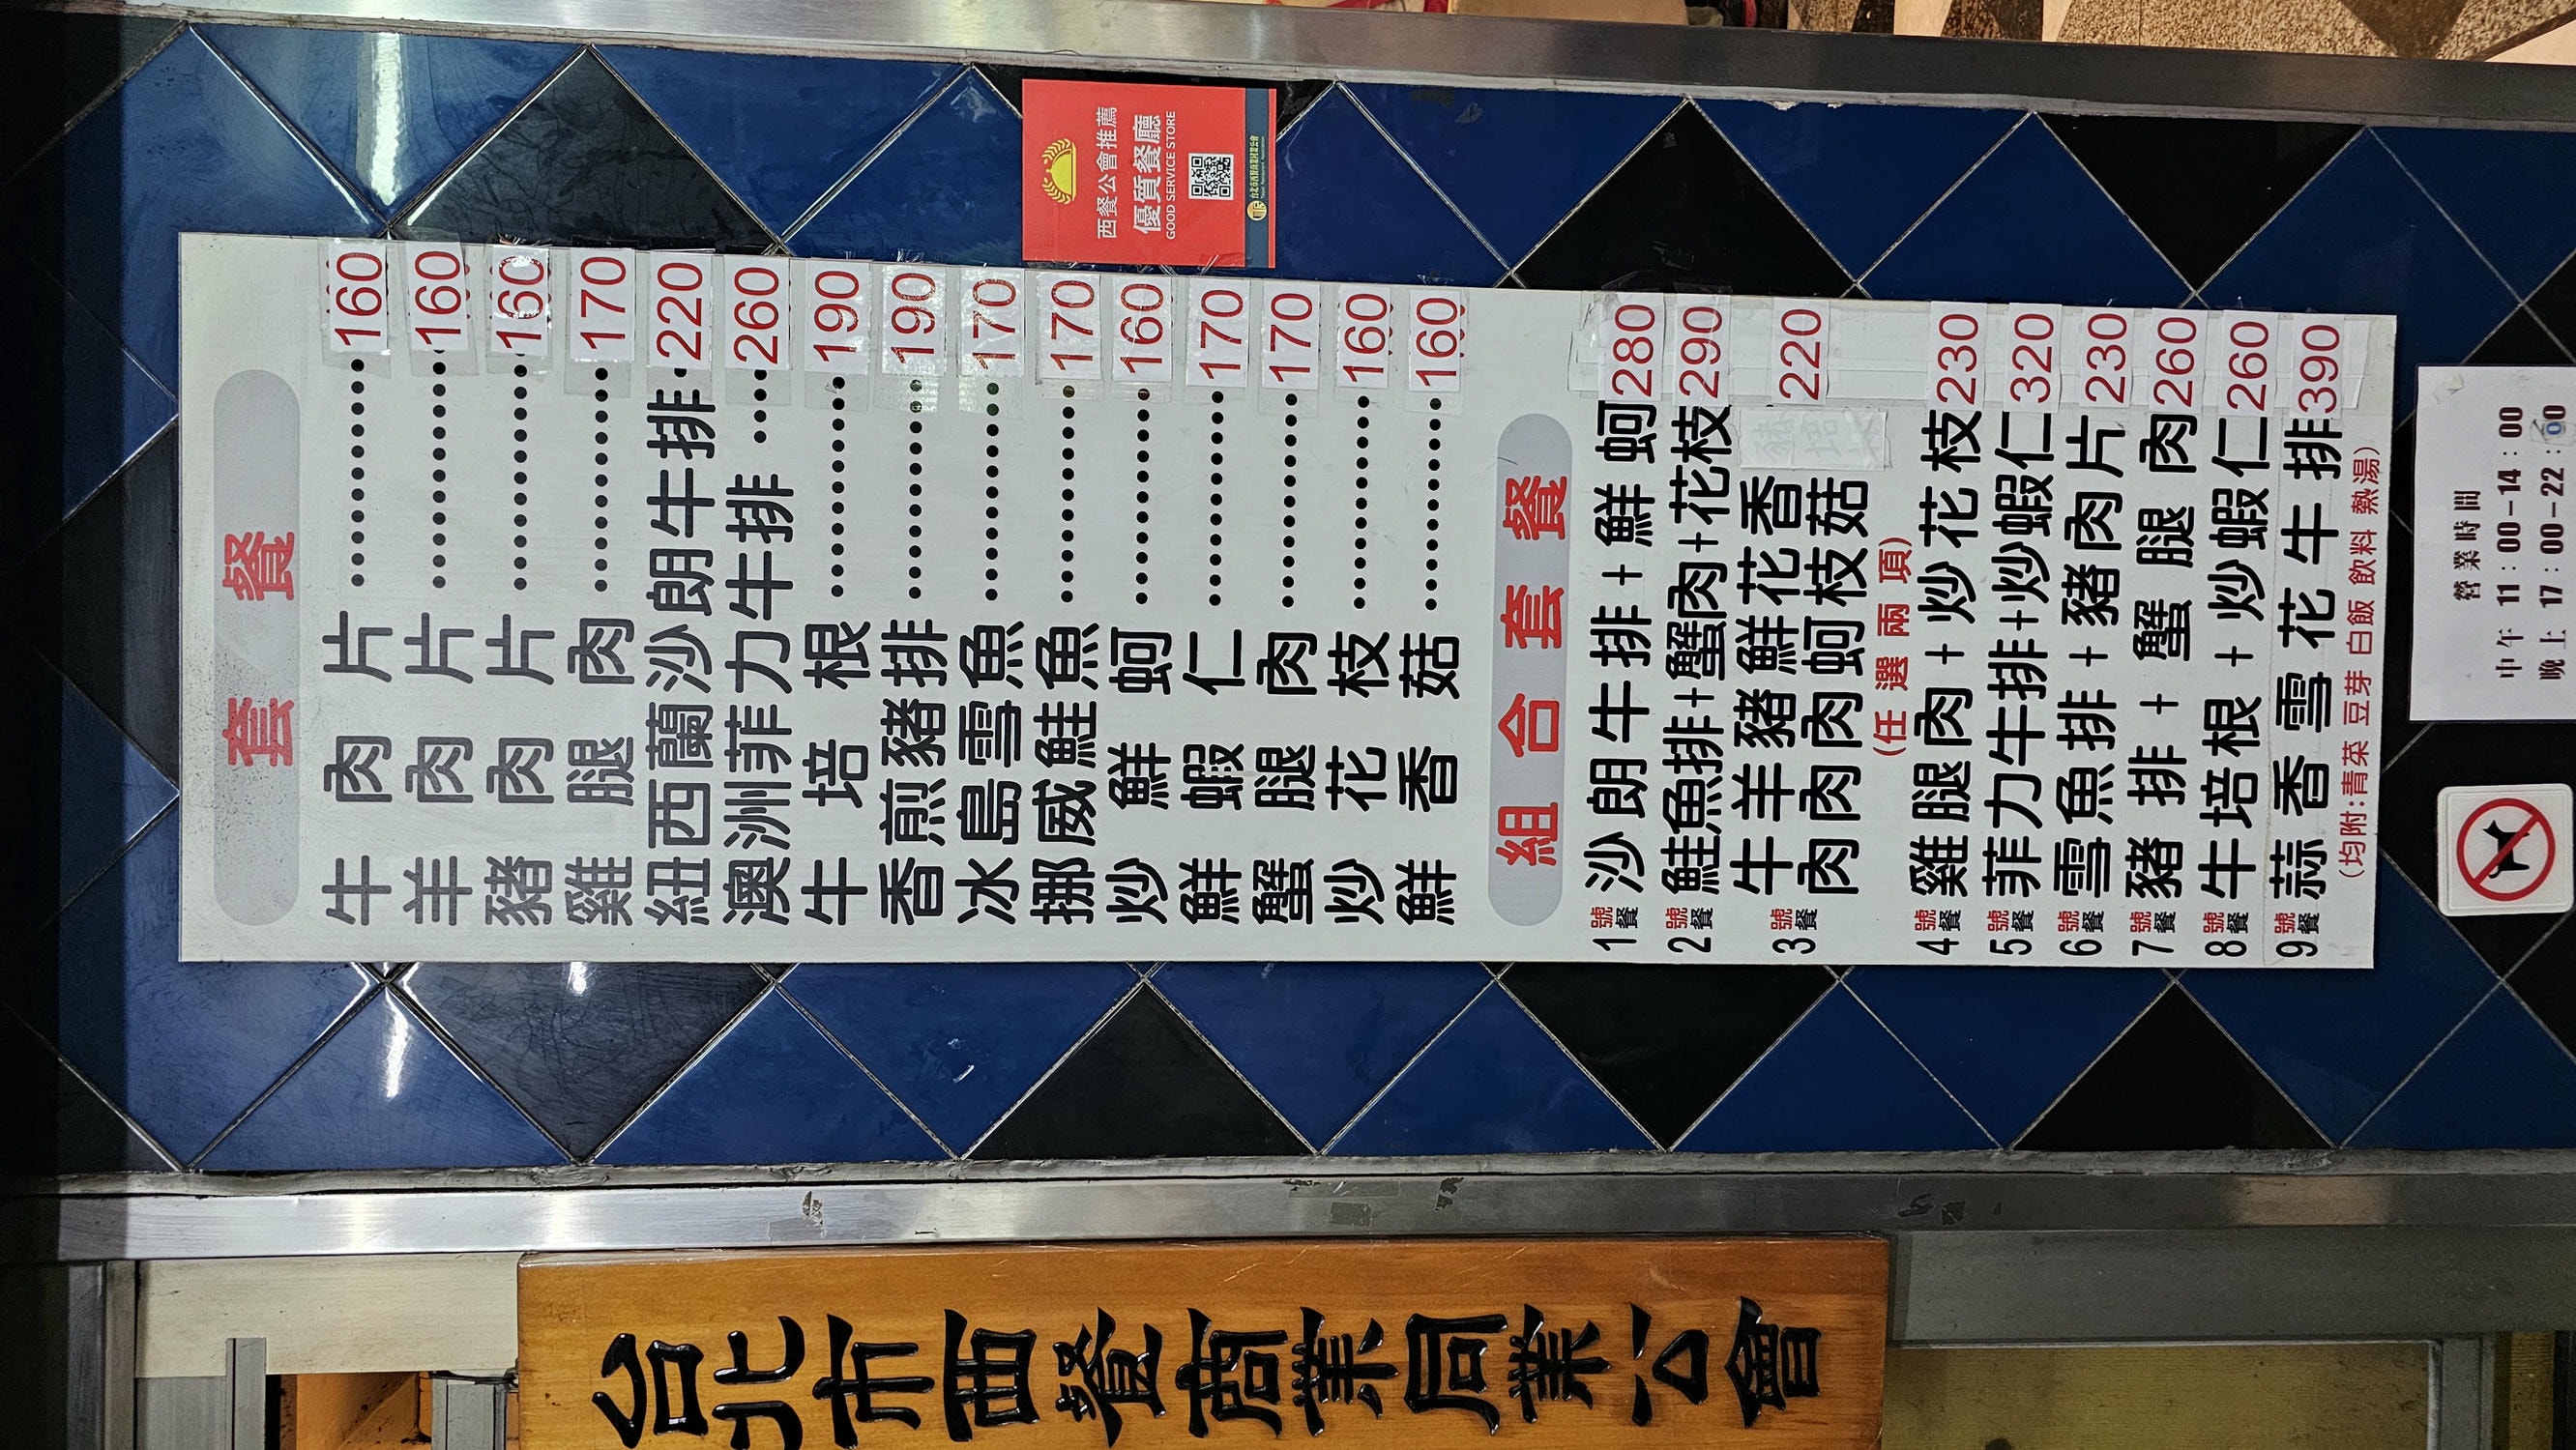 套餐
牛肉片............160
羊肉片............160
豬肉片............160
雞腿肉............170
紐西蘭沙朗牛排.220
澳洲菲力牛排....260
牛培根............190
香煎豬排............190
冰島雪魚............170
挪威鮭魚............170
炒鮮蚵............160
鮮蝦仁............170
蟹腿肉............170
炒花枝............160
鮮香菇............160
組合套餐
1號餐 沙朗牛排+鮮蚵280
2號餐 鮭魚排+蟹肉+花枝290
3號餐 牛羊豬鮮花香 220
肉肉肉蚵枝菇
(任選兩項)
4號餐 雞腿肉+炒花枝230
5號餐 菲力牛排+炒蝦仁320
6號餐 雪魚排+豬肉片230
7號餐 豬排+蟹腿肉260
8號餐 牛培根+炒蝦仁260
9號餐 蒜香雪花牛排390
(均附:青菜 豆芽 白飯 飲料 熱湯)
西餐公會推薦
優質餐廳
GOOD SERVICE STORE
營業時間
中午 11:00-14:00
晚上 17:00-22:00
台北市西餐商業同業公會